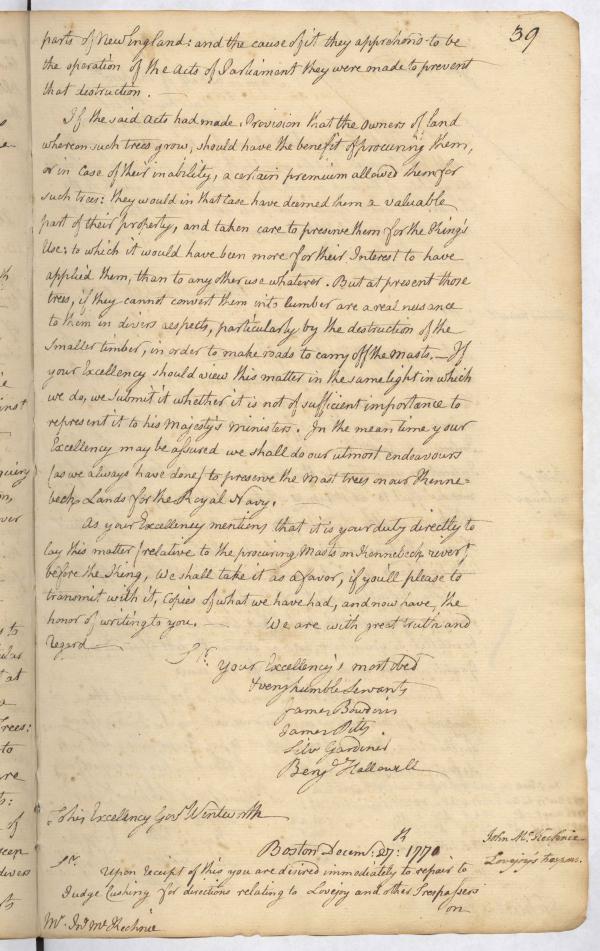 39
parts of New England: and the cause of it they apprehend to be
the operation of the Acts of Parliament they were made to prevent
that destruction. —
If the said Acts had made Provision that the owners of land
whereon such trees grow, should have the benefit of procuring them,
or in case of their inability, a certain premium allowed them for
such trees: they would in that case have deemed them a valuable
part of their property, and taken care to preserve them for the King's
Use: to which it would have been more for their Interest to have
applied them, than to any other use whatever. But at present those
trees, if they cannot convert them into lumber are a real nusance
to them in divers respects, particularly by the destruction of the
smaller timber, in order to make roads to carry off the Masts. — If
your Excellency should view this matter in the same light in which
we do, we submit it whether it is not of sufficient importance to
represent it to his Majesty's ministers. In the mean time your
Excellency may be assured we shall do our utmost endeavours
(as we always have done) to preserve the Mast trees on our Kenne=
beck Lands for the Royal Navy. —
As your Excellency mentions that it is your duty directly to
lay this matter (relative to the procuring Masts on Kennebeck river)
before the King, we shall take it as a favor, if you'll please to
transmit with it, copies of what we have had, and now have, the
honor of writing to you. — We are with great truth and
regard —
Sr. your Excellency's most obed
& very humble Servants
James Bowdoin
James Pitts
Silvr Gardiner
Benj Hallowell
To his Excellency Govr Wentworth
Boston Decem: 27th: 1770
John Mc Kechnie
Lovejoys
Sr. Upon receipt of this you are desired immediately to repair to
Judge Cushing for directions relating to Lovejoy and other Trespassers
on
Mr. Jno Mc Kechnie